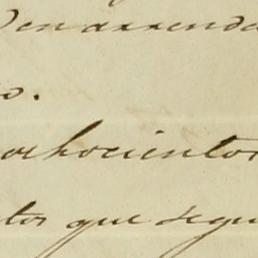 en arrenda
o.
ochocientos
tos que segu